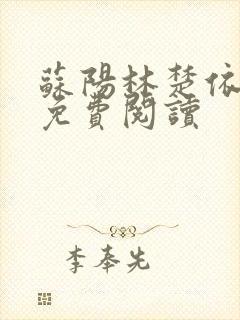 蘇陽林楚依
免費閱讀
李奉先